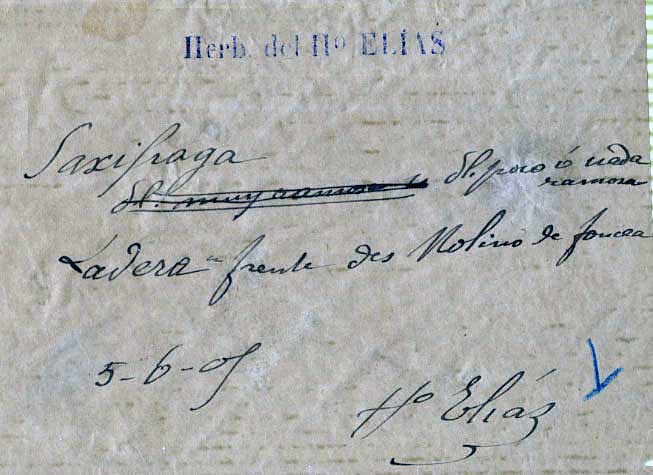 Herb. del Hº ELÍAS
Saxifraga
fl. muy ramosa fl. poco ó nada
ramosa
Ladera frente del Molino de foncea
5-6-05
Hº Elías